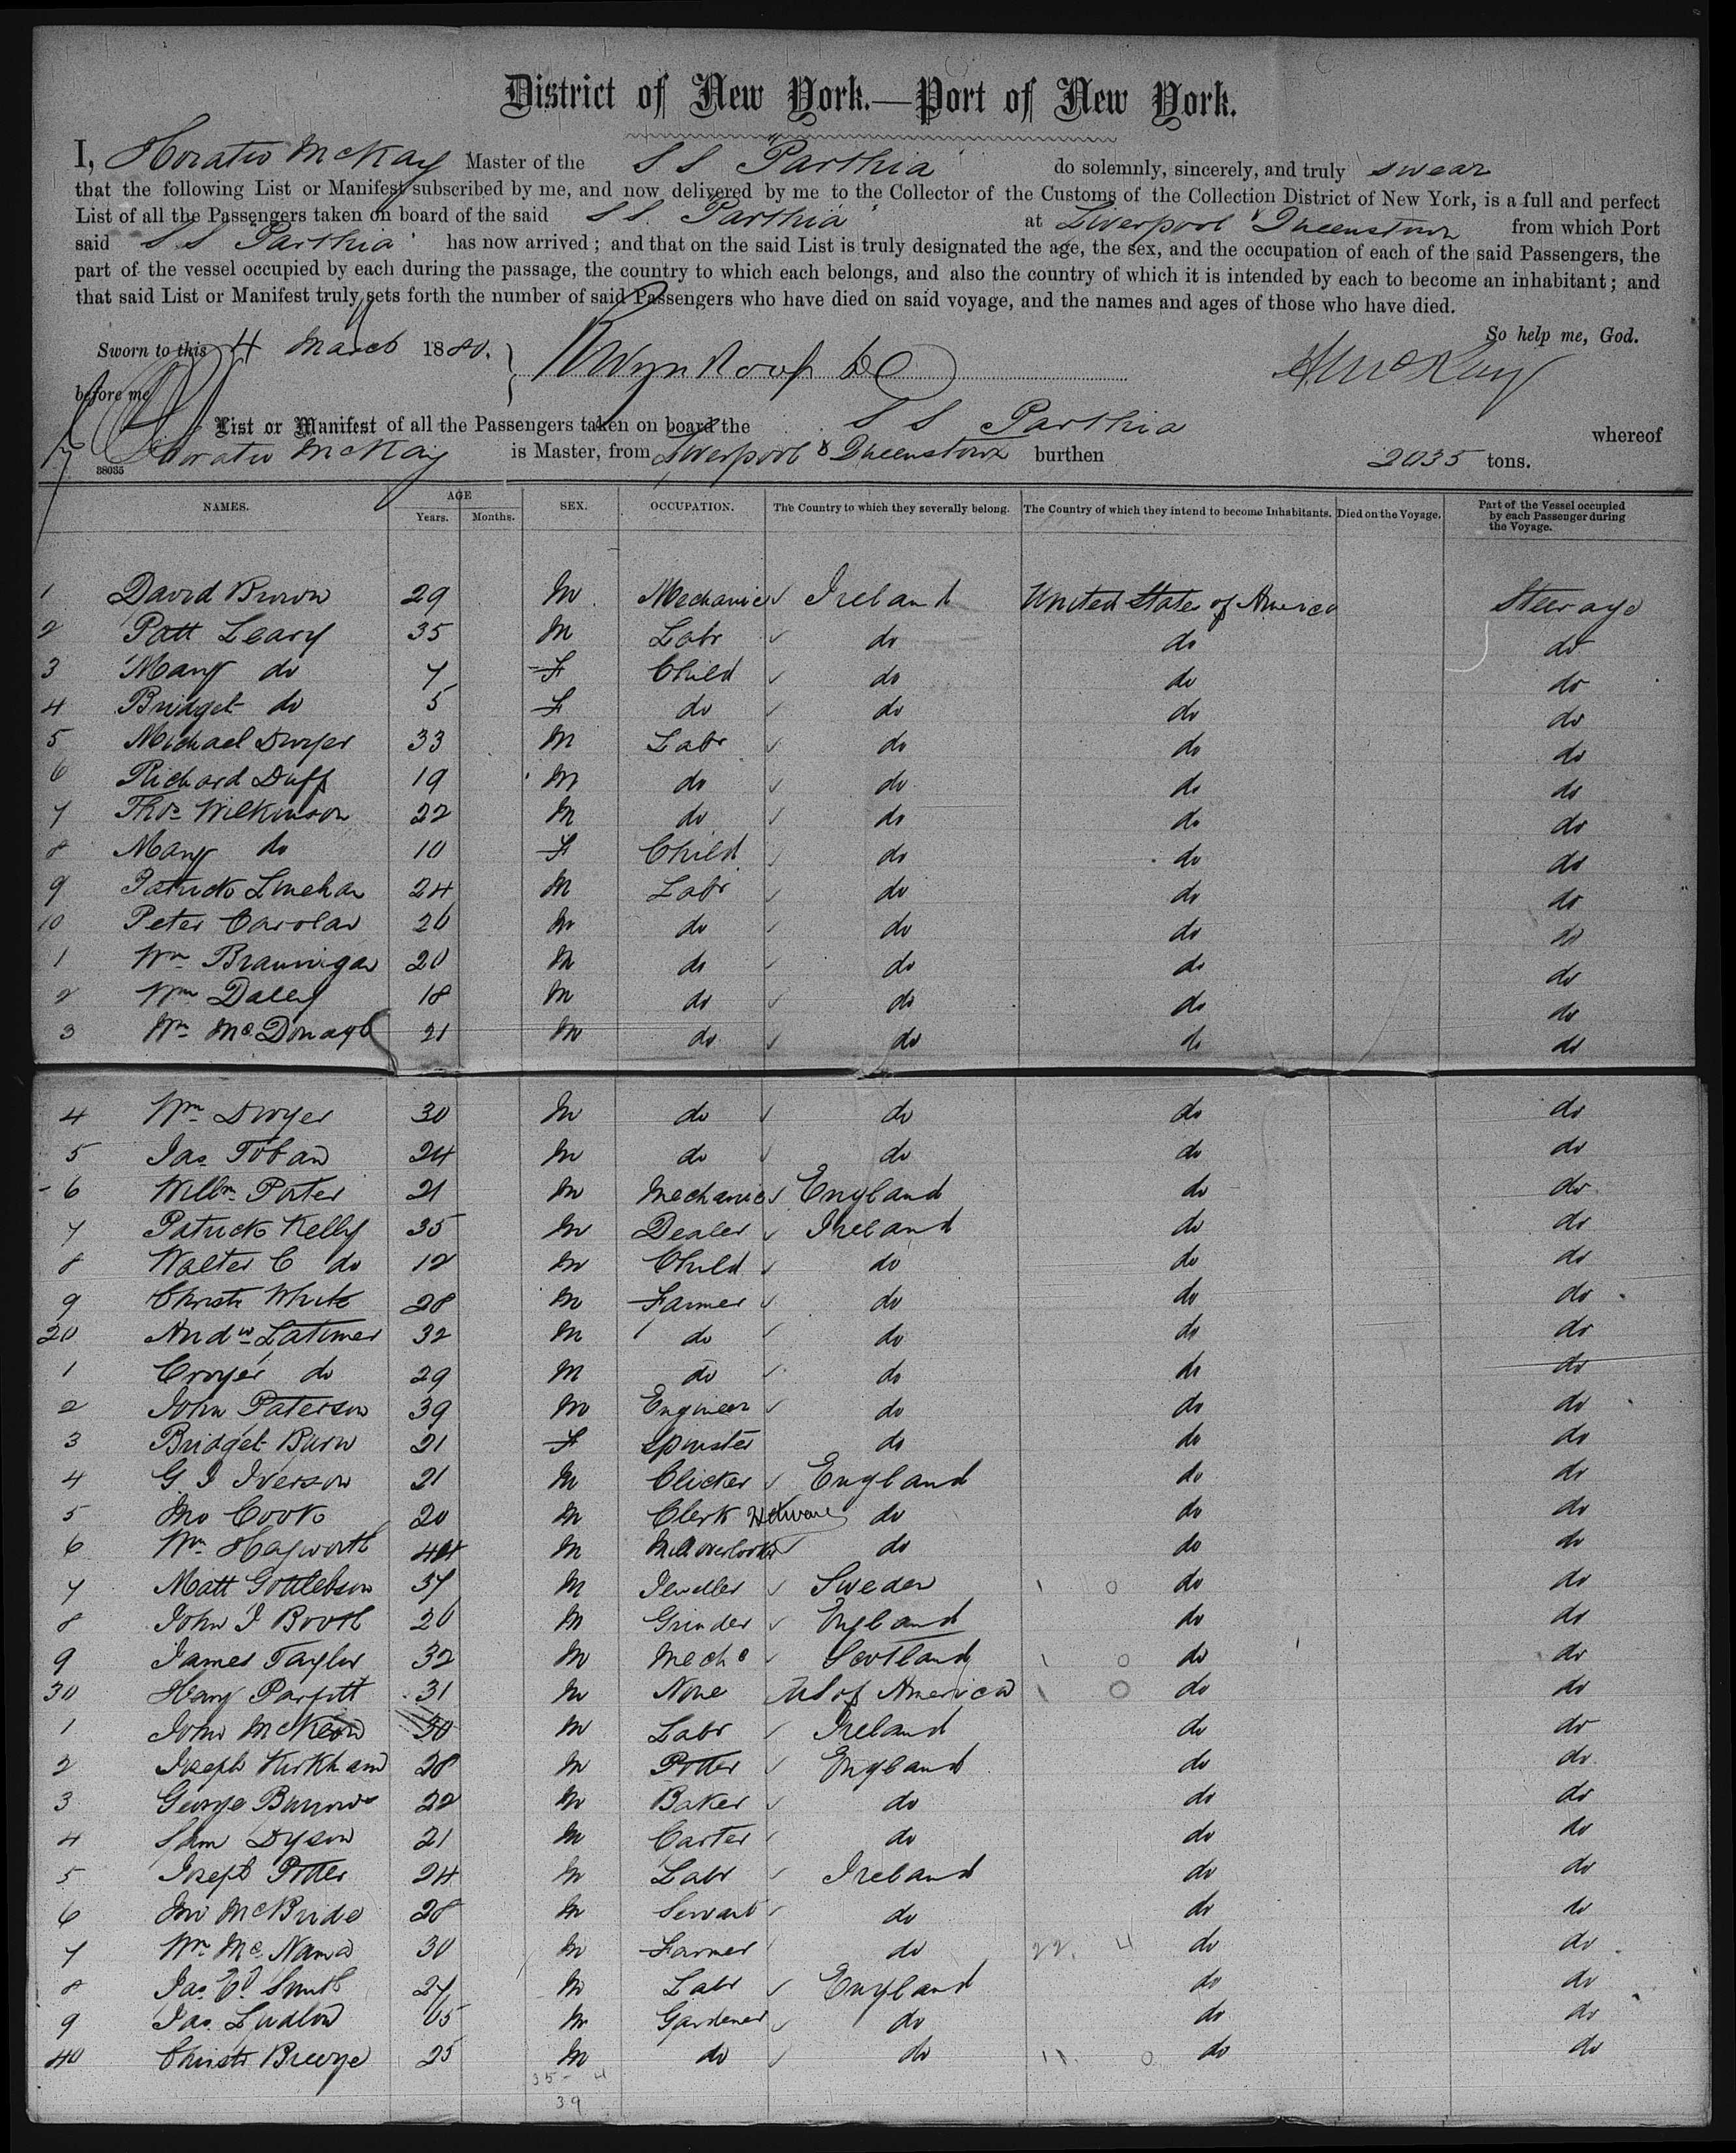 District of New York.—Port of New York.
I, Horatio McKay Master of the S S "Parthia" do solemnly, sincerely, and truly swear
that the following List or Manifest subscribed by me, and now delivered by me to the Collector of the Customs of the Collection District of New York, is a full and perfect
List of all the Passengers taken on board of the said S S. "Parthia" at Liverpool & Queenstown from which Port
said S S "Parthia" has now arrived; and that on the said List is truly designated the age, the sex, and the occupation of each of the said Passengers, the
part of the vessel occupied by each during the passage, the country to which each belongs, and also the country of which it is intended by each to become an inhabitant; and
that said List or Manifest truly sets forth the number of said Passengers who have died on said voyage, and the names and ages of those who have died.
So help me, God.
Sworn to this 4 March 1880. Wynkoop DC HMcKay
before me
List or Manifest of all the Passengers taken on board the S S Parthia whereof
Horatio McKay is Master, from Liverpool & Queenstown burthen 2035 tons.
38035
NAMES. AGE Years. Months. SEX. OCCUPATION. The Country to which they severally belong. The Country of which they intend to become Inhabitants. Died on the Voyage. Part of the Vessel occupied by each Passenger during the Voyage.
1 David Brown 29 M Mechanic Ireland United State of America Steerage
2 Patt Leary 35 M Labr do do do
3 Mary do 7 F Child do do do
4 Bridget do 5 F do do do do
5 Michael Dwyer 33 M Labr do do do
6 Richard Duff 19 M do do do do
7 Thos Wilkinson 22 M do do do do
8 Mary do 10 F Child do do do
9 Patrick Linehan 24 M Labr do do do
10 Peter Carolan 26 M do do do do
1 Wm Brannigan 20 M do do do do
2 Wm Daley 18 M do do do do
3 Wm McDonagh 21 M do do do do
4 Wm Dwyer 30 M do do do do
5 Jas Toban 24 M do do do do
6 Willm Porter 21 M Mechanic England do do
7 Patrick Kelly 35 M Dealer Ireland do do
8 Walter C do 12 M Child do do do
9 Christr White 28 M Farmer do do do
20 Andw Latimer 32 M do do do do
1 do 29 M do do do do
2 John Paterson 39 M Engineer do do do
3 Bridget Burn 21 F Spinster do do do
4 G J Iverson 21 M Clicker England do do
5 Jno Cook 20 M Clerk do do do
6 Wm Hayworth 44 M Mill overlooker do do do
7 Matt Gottlebson 37 M Jeweller Sweden do do
8 John J Booth 26 M Grinder England do do
9 James Taylor 32 M Mechc Scotland do do
30 Harry Parfitt 31 M None US of America do do
1 John McKeon 30 M Labr Ireland do do
2 Joseph Kirkham 28 M Potter England do do
3 George Burrows 22 M Baker do do do
4 Sam Dyson 21 M Carter do do do
5 Joseph Potter 24 M Labr Ireland do do
6 Jno McBride 28 M Servant do do do
7 Wm Mc Nama 30 M Farmer do 22. 4 do do
8 Jas Ed Smith 27 M Labr England do do
9 Jas Ludlow 65 M Gardener do do do
40 Christr Breeze 25 M do do 11. 0 do do
35 - 4
39